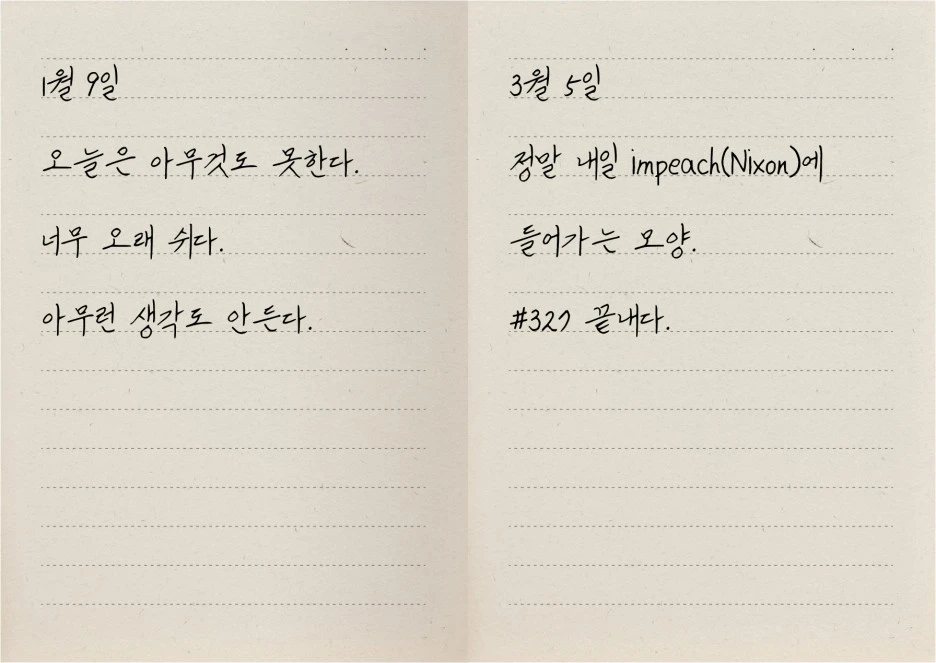 1월 9일
오늘은 아무것도 못한다.
너무 오래 쉬다.
아무런 생각도 안든다.
3월 5일
정말 내일 impeach(Nixon)에
들어가는 모양.
#327 끝내다.